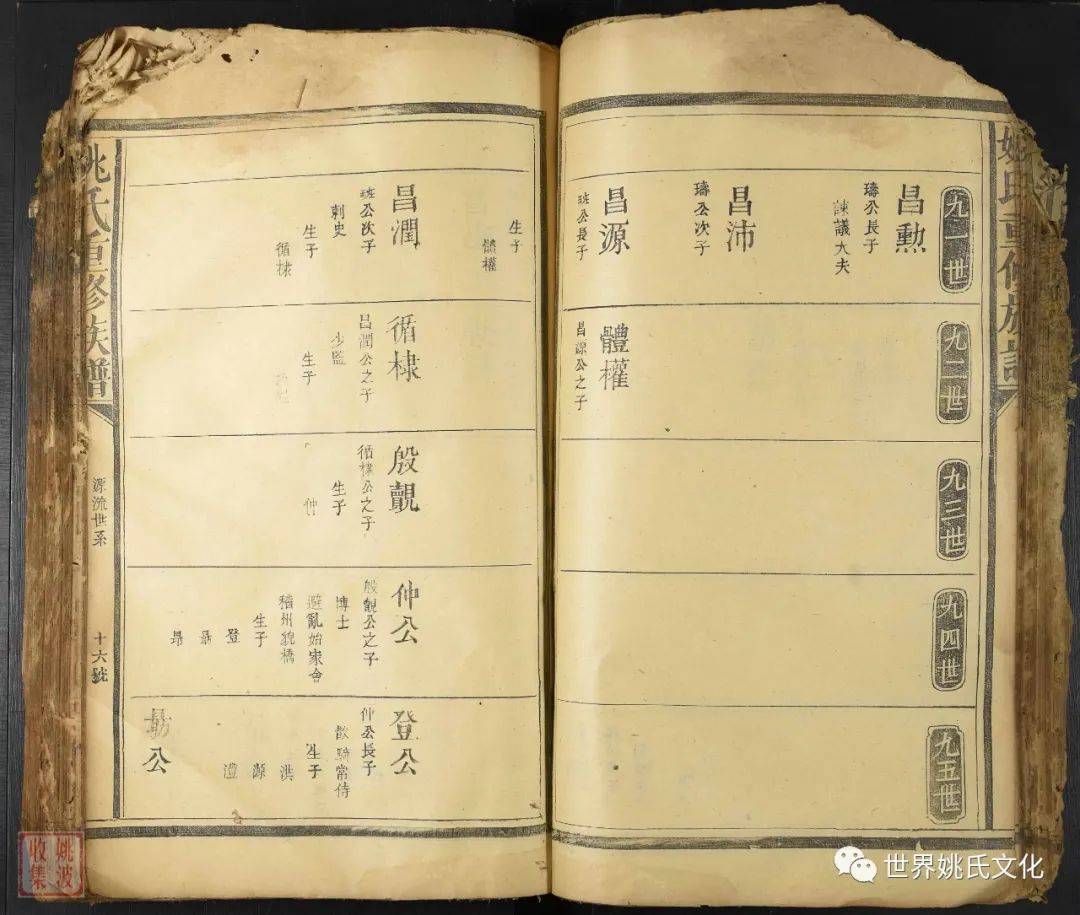 姚氏重修族譜
九一世
昌勲
璹公長子
諫議大夫
昌沛
璹公次子
昌源
珽公長子
九二世
體權
昌源公之子
九三世
九四世
九五世
生子
體權
昌潤
珽公次子
刺史
生子
循棣
循棣
昌潤公之子
少監
生子
殷覿
循棣公之子
生子
仲
仲公
殷覿公之子
博士
避亂始家會
稽州貌橋
生子
登
鼎
登公
仲公長子
散騎常侍
生子
洪
源
澧
公
姚氏重修族譜
源流世系
十六號
姚波
收集
世界姚氏文化